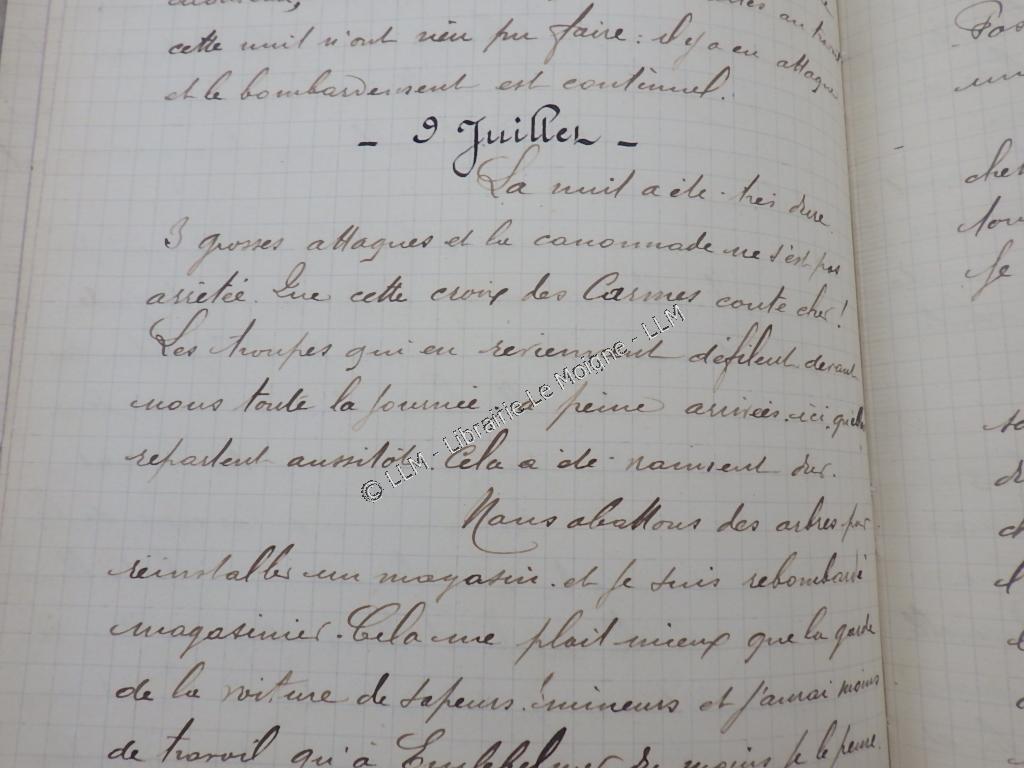 cette nuit n'ont rien pu faire : il y a eu attaque
et le bombardement est continuel.
- 9 Juillet -
La nuit a été très dure.
3 grosses attaques et la canonnade ne s'est pas
arrêtée. Que cette croix des Carmes coute cher !
Les troupes qui en reviennent défilent devant
nous toute la journée, à peine arrivées ici, qu'elles
repartent aussitôt. Cela a été vraiment dur.
Nous abattons des arbres pour
réinstaller un magasin. et je suis rebombardé
magasinier. Cela me plait mieux que la garde
de la voiture de sapeurs mineurs et j'aurai moins
de travail qu'à du moins je le pense.
© LLM - Librairie Le Moigne - LLM
Pas
un
cher
tou
Je